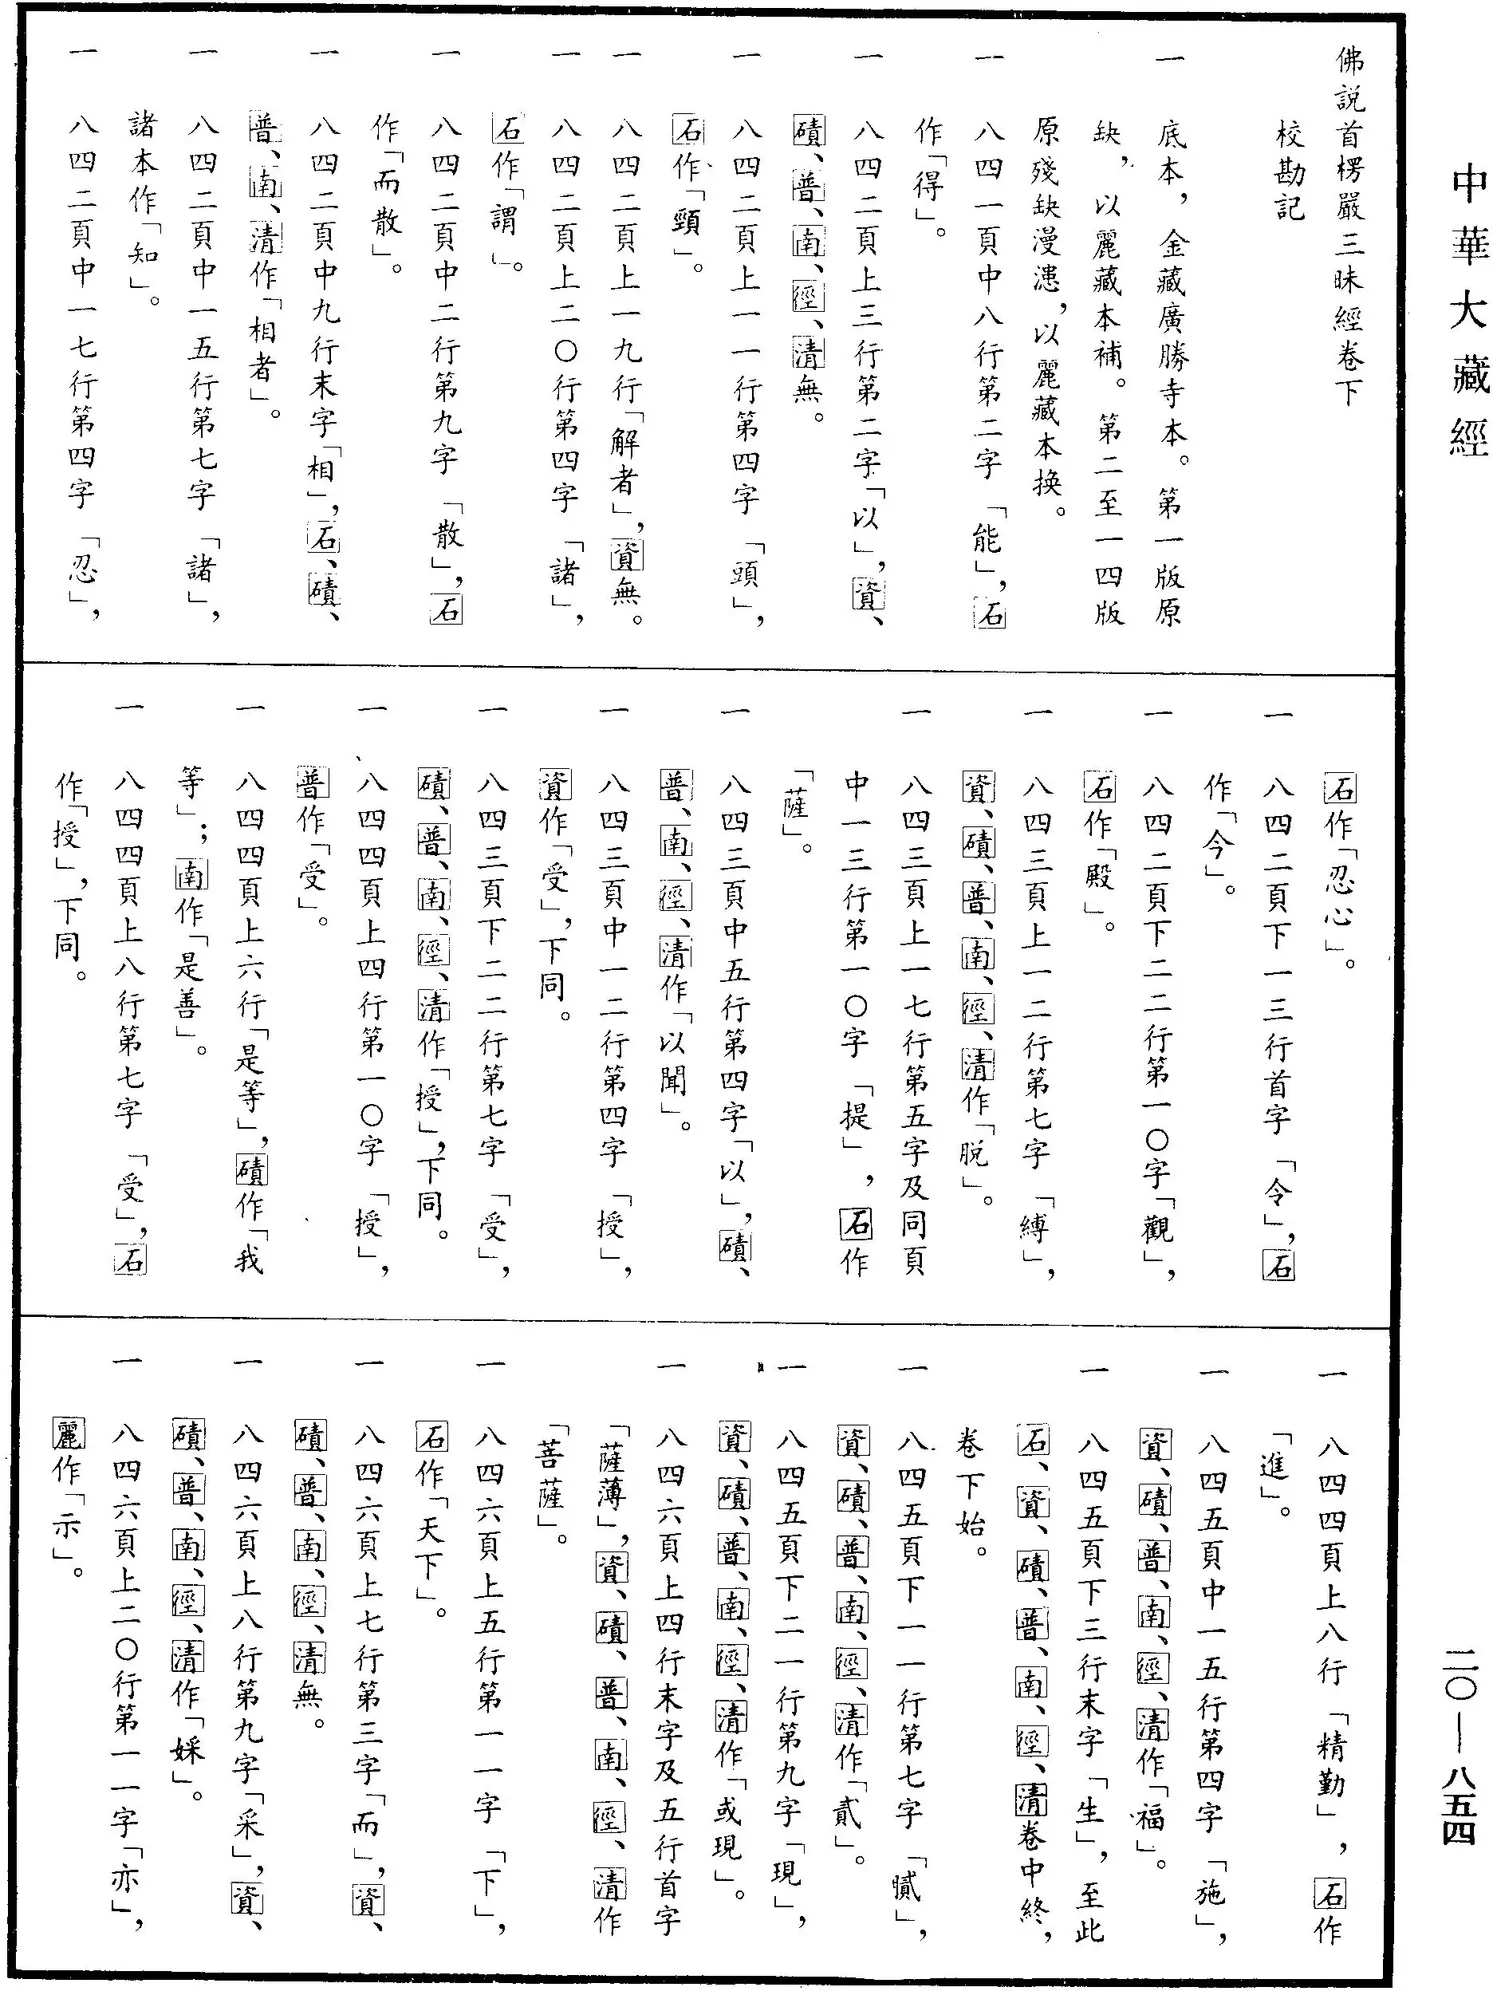 中華大藏經
佛說首楞嚴三昧經卷下
校勘記
一　底本，金藏廣勝寺本。第一版原
缺，以麗藏本補。第二至一四版
原殘缺漫漶，以麗藏本换。
一　八四一頁中八行第二字「能」，石
作「得」。
一　八四二頁上三行第二字「以」，資、
磧、普、南、徑、清無。
一　八四二頁上一一行第四字「頭」，
石作「頸」。
一　八四二頁上一九行「解者」，資無。
一　八四二頁上二〇行第四字「諸」，
石作「謂」。
一　八四二頁中二行第九字「散」，石
作「而散」。
一　八四二頁中九行末字「相」，石、磧、
普、南、清作「相者」。
一　八四二頁中一五行第七字「諸」，
諸本作「知」。
一　八四二頁中一七行第四字「忍」，
石作「忍心」。
一　八四二頁下一三行首字「令」，石
作「今」。
一　八四二頁下二二行第一〇字「觀」，
石作「殿」。
一　八四三頁上一二行第七字「縛」，
資、磧、普、南、徑、清作「脱」。
一　八四三頁上一七行第五字及同頁
中一三行第一〇字「提」，石作
「薩」。
一　八四三頁中五行第四字「以」，磧、
普、南、徑、清作「以聞」。
一　八四三頁中一二行第四字「授」，
資作「受」，下同。
一　八四三頁下二二行第七字「受」，
磧、普、南、徑、清作「授」，下同。
一　八四四頁上四行第一〇字「授」，
普作「受」。
一　八四四頁上六行「是等」，磧作「我
等」；南作「是善」。
一　八四四頁上八行第七字「受」，石
作「授」，下同。
一　八四四頁上八行「精勤」，石作
「進」。
一　八四五頁中一五行第四字「施」，
資、磧、普、南、徑、清作「福」。
一　八四五頁下三行末字「生」，至此
石、資、磧、普、南、徑、清卷中終，
卷下始。
一　八四五頁下一一行第七字「膩」，
資、磧、普、南、徑、清作「貳」。
一　八四五頁下二一行第九字「現」，
資、磧、普、南、徑、清作「或現」。
一　八四六頁上四行末字及五行首字
「薩薄」，資、磧、普、南、徑、清作
「菩薩」。
一　八四六頁上五行第一一字「下」，
石作「天下」。
一　八四六頁上七行第三字「而」，資、
磧、普、南、徑、清無。
一　八四六頁上八行第九字「采」，資、
磧、普、南、徑、清作「婇」。
一　八四六頁上二〇行第一一字「亦」，
麗作「示」。
二〇—八五四